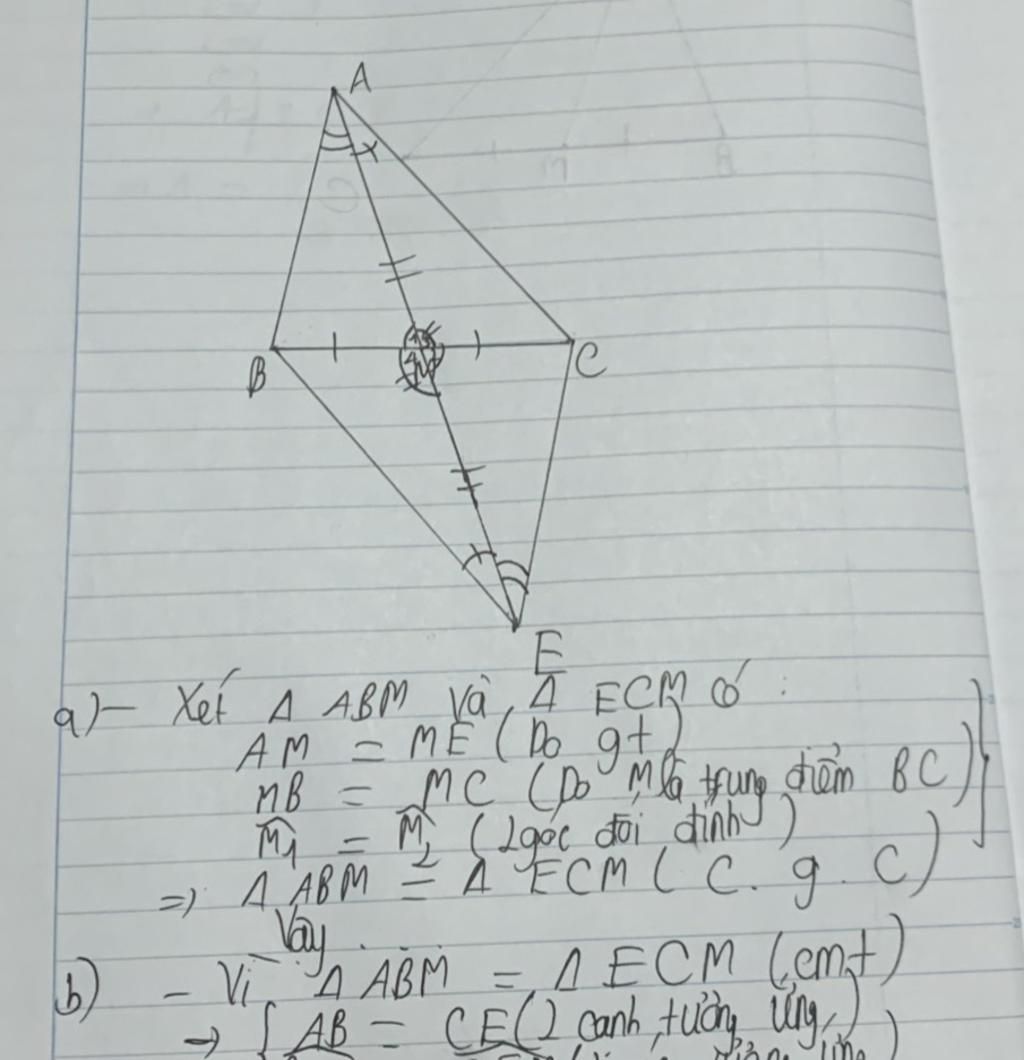 A
B
C
E
a) - Xét Δ ABM và Δ ECM có :
AM = ME (Do gt)
MB = MC (Do M là trung điểm BC)
M̂₁ = M̂₂ (2 góc đối đỉnh)
=> Δ ABM = Δ ECM (C. g. C)
Vậy .
b) - Vì Δ ABM = Δ ECM (cmt)
→ { AB = CE (2 cạnh tương ứng)